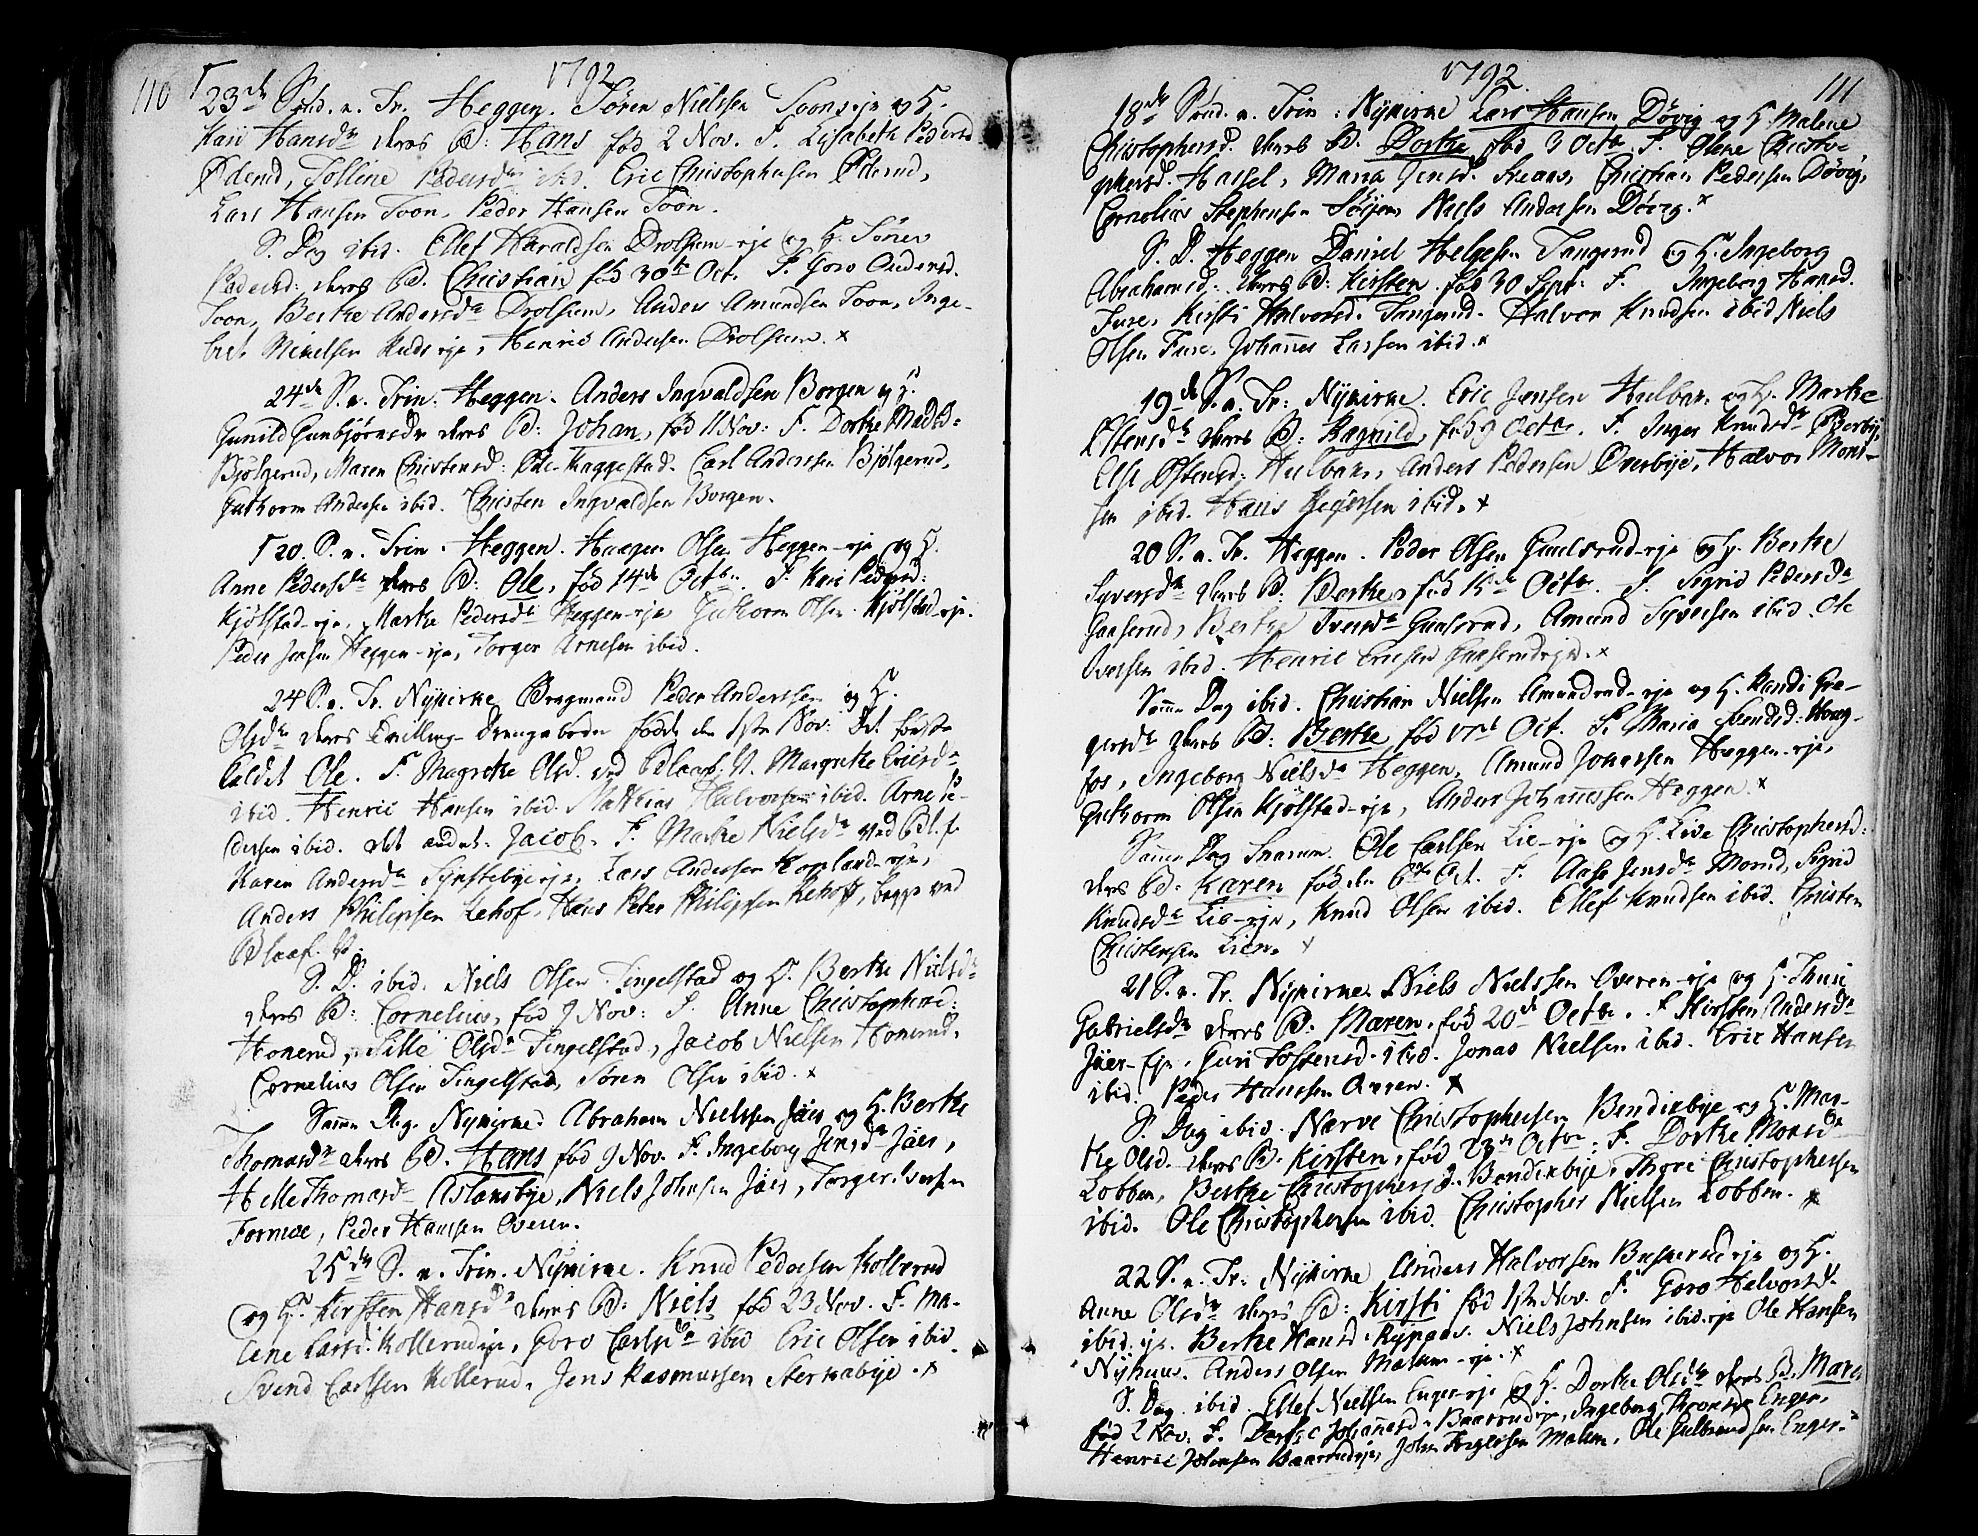 110
1792
23de Sønd. n. Tr. Heggen. Søren Nielssen Toons eje og H.
Kari Hansdr deres B: Hans fød 2 Nov. F. Lisabeth Pedersd
Øderud, Tolline Pedersdr ibid. Eric Christophersen Øderud,
Lars Hansen Toon, Peder Hansen Toon.
S. Dag ibid. Ellef Haraldsen Drolsum-eje og H.
Pedersd: deres B. Christian fød 30te Oct. F. Goro Andersd.
Toon, Berthe Andersdr Drolsum, Anders Amundsen Toon, Inge-
bret Mikelsen Ruds eje, Henric Andersen Drolsum. x
24de S. n. Trin: Heggen. Anders Ingvaldsen Borgen og H.
Gunild Gunbjørnsdr deres B: Johan, fød 11 Nov: F. Dorthe Madsd.
Bjølgerud, Maren Christensd: Haggestad. Carl Anderssen Bjølgerud,
Guthorm Andersen ibid. Christen Ingvaldsen Borgen.
20. S. n. Trin. Heggen. Haagen Olsen Heggen-eje og H.
Anne Pedersdr deres B: Ole, fød 14de Octbr. F. Kari Pedersd:
Kjølstad-eje, Marthe Pedersdr Heggen-eje Guthorm Olsen Kjølstad-eje.
Peder Jensen Heggen-eje, Torger Arnesen ibid.
24 S. n. Tr. Nykirke Bragmand Peder Anderssen og H.
Olsdr deres Tvilling-Drengebørn fødde den 1ste Nov: Det første
kaldet Ole. F. Magrethe Olsd. ved Blaaf. V. Margrethe Ericsdr
ibid. Henric Hansen ibid. Mathias Halvorsen ibid. Arne Pe-
dersen ibid. det andet: Jacob. F. Marthe Nielsdr ved Bl. f.
Karen Andersdr Lars Andersen Hopland-eje,
Anders Philipsen Lehof, Hans Peter Philipsen Lehoff, begge ved
Blaaf. V.
S. D. ibid. Niels Olsen Tingelstad og H. Berthe Nielsdr
deres B: Cornelius, fød 9 Nov: F. Anne Christophersd:
Honerud, Sille Olsdr Tingelstad, Jacob Nielsen Honerud,
Cornelius Olsen Tingelstad, Søren Olsen ibid. x
Samme Dag. Nykirke. Abraham Nielssen Jaer og H. Berthe
Thomasdr deres B. Hans fød 9 Nov. F. Ingeborg Jensdr Jaer,
Helle Thomasdr Aslaksbye, Niels Johnsen Jaer, Torger Iversen
Formoe, Peder Hansen Overen.
25de S. n. Trin. Nykirke. Knud Pedersen Kollerud
og H. Kirsten Hansdr deres B: Niels fød 23 Nov. F. Ma-
lene Larsd. Kollerudeje, Goro Carlsdr ibid Eric Olsen ibid.
Svend Carlsen Kollerud. Jens Rasmussen Sterkabye. x
1792.
111
18de Sønd. n. Trin: Nykirke Lars Hansen Døvig og H. Malene
Christophersd. deres B. Dorthe fød 3 Octb. F. Olene Christo-
phersd. Hassel, Maria Jensd. Christian Pedersen Døvig,
Cornelius Stephensen Niels Andersen Døvig. x
S. D. Heggen Daniel Helgesen Tangerud og H. Ingeborg
Abrahamsd: deres B: Kirsten fød 30 Sept: F. Ingeborg Hansd.
Fure, Kirsti Halvorsd. Tangerud. Halvor Knudsen ibid Niels
Olsen Fure. Johannes Larsen ibid. x
19de S. n. Tr: Nykirke. Eric Jensen Hulbak og H. Marthe
Østensdr deres B: Ragnild, fød 9 Octbr. F. Inger Knudsdr Overbye,
Else Østensd. Hulbak, Anders Pedersen Overbye, Halvor Mons-
sen ibid. Hans Reyersen ibid. x
20 S. n. Tr. Heggen. Peder Olsen Gunlsrud-eje og H. Berthe
Syversdr deres B: Berthe fød 15de Octbr. F. Sigrid Pedersdr
Gunserud, Berthe Iversdr Gunserud, Amund Syversen ibid. Ole
Iversen ibid. Henric Ericsen Gunserudeje. x
Samme Dag ibid. Christian Nielsen Amundrud-eje og H. Randi Gre-
gersdr deres B: Berthe fød 17de Oct. F. Maria Houg-
fos, Ingeborg Nielsdr Heggen, Amund Johanssen Heggen-eje,
Guthorm Olsen Kjølstad-eje, Anders Johannessen Heggen x
Samme Dag Snarum. Ole Carlsen Lie-eje og H. Live Christophersd:
deres B: Karen fød den 6te Oct. F. Aase Jensdr Moerud, Sigrid
Knudsdr Lie-eje, Knud Olsen ibid. Ellef Knudsen ibid. Christen
Christensen Lien. x
21 S. n. Tr. Nykirke. Niels Nielssen Overen-eje og H. Thurie
Gabrielsdr deres B: Maren. fød 20de Octbr. F. Kirsten Andersdr
Jaer-eje, Guri Tostensd. ibid. Jonas Nielsen ibid. Eric Hansen
ibid. Peder Hansen Overen. x
S. Dag ibid. Narve Christophersen Bendixbye og H. Mar-
the Olsd. deres B. Kirsten, fød 23de Octbr. F. Dorthe Monsdr
Lobben, Berthe Christophersd. Bendixbye, Thore Christophersen
ibid. Ole Christophersen ibid. Christopher Nielsen Lobben. x
22 S. n. Tr: Nykirke Anders Halvorsen Buskeruds eje og H.
Anne Olsdr deres B: Kirsti fød 1ste Nov. F. Goro Halvorsd.
ibid: eje. Berthe Hansd. Rypaas. Niels Johnsen ibid: eje Ole Hansen
Nyhuus. Anders Olsen Malum-eje. x
S. Dag ibid. Ellef Nielsen Enger-eje og H. Dorthe Olsdr deres B. Maren
fød 2 Nov. F. Dorthe Johannesd. Baarrudeje, Ingeborg Thronsd. Enger,
Henric Johnsen Baarrudeje, John Torgersen Malum, Ole Gulbrandsen Enger. x